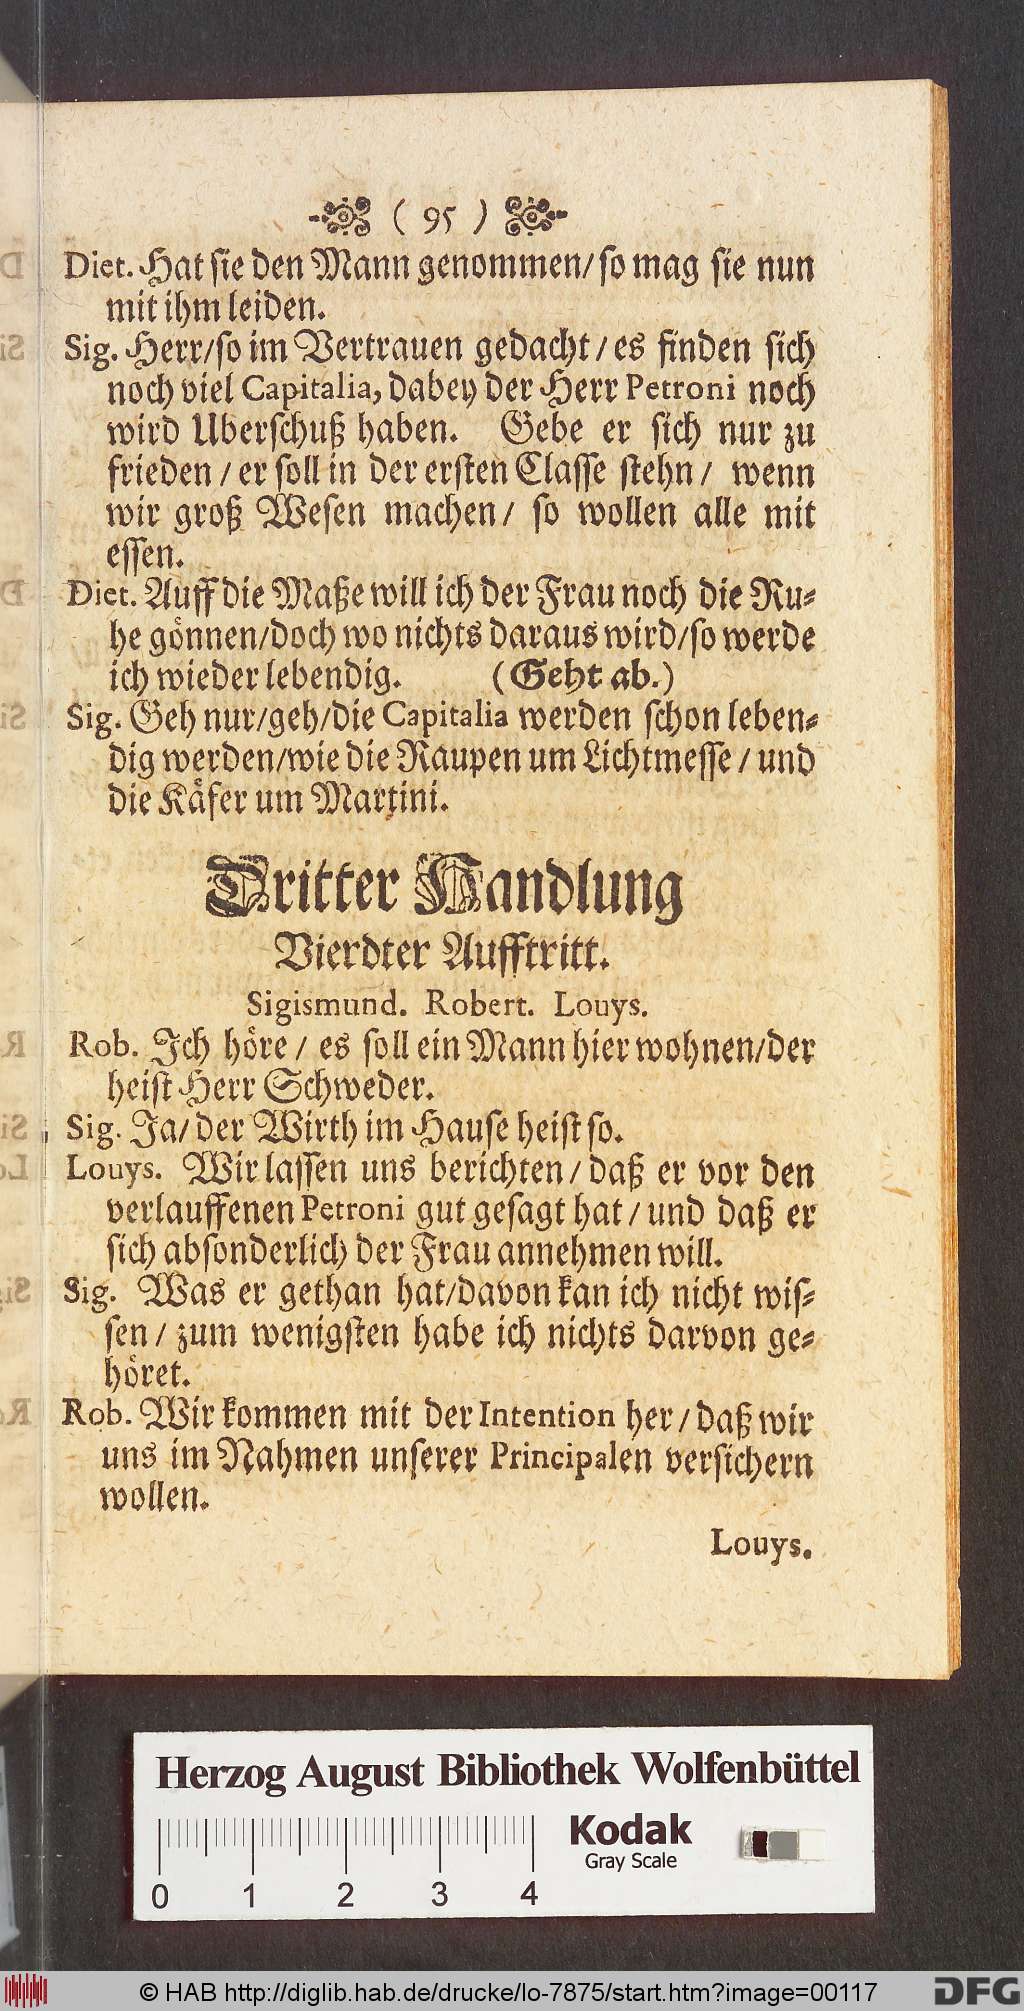 ( 95 )
Diet. Hat sie den Mann genommen/ so mag sie nun
mit ihm leiden.
Sig. Herr/so im Vertrauen gedacht / es finden sich
noch viel Capitalia, dabey der Herr Petroni noch
wird Uberschuß haben. Gebe er sich nur zu
frieden / er soll in der ersten Classe stehn / wenn
wir groß Wesen machen/ so wollen alle mit
essen.
Diet. Auff die Maße will ich der Frau noch die Ru-
he gönnen/doch wo nichts daraus wird/so werde
ich wieder lebendig. (Geht ab.)
Sig. Geh nur/geh/die Capitalia werden schon leben-
dig werden/wie die Raupen um Lichtmesse / und
die Käfer um Martini.
Dritter Handlung
Vierdter Aufftritt.
Sigismund. Robert. Louys.
Rob. Ich höre / es soll ein Mann hier wohnen/der
heist Herr Schweder.
Sig. Ja/ der Wirth im Hause heist so.
Louys. Wir lassen uns berichten / daß er vor den
verlauffenen Petroni gut gesagt hat / und daß er
sich absonderlich der Frau annehmen will.
Sig. Was er gethan hat/davon kan ich nicht wis-
sen / zum wenigsten habe ich nichts darvon ge-
höret.
Rob. Wir kommen mit der Intention her / daß wir
uns im Nahmen unserer Principalen versichern
wollen.
Louys.
Herzog August Bibliothek Wolfenbüttel
Kodak
Gray Scale
0 1 2 3 4
© HAB http://diglib.hab.de/drucke/lo-7875/start.htm?image=00117
DFG